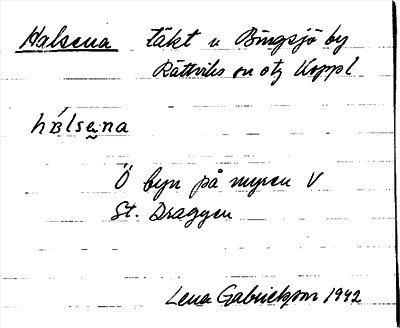 Halsena täkt u Bingsjö by
Rättviks sn otg Koppl
hålsena
Ö byn på myren V
St. Draggen
Lena Gabrielsson 1942